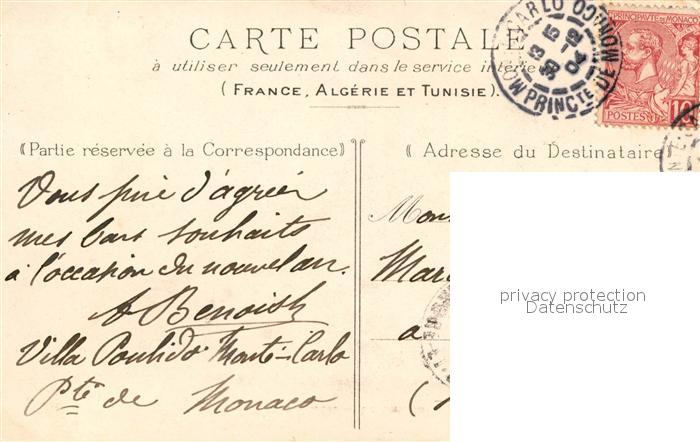 CARTE POSTALE
à utiliser seulement dans le service intérie
(FRANCE, ALGÉRIE ET TUNISIE).
MONTE-CARLO
PRINCTE DE MONACO
PRINCIPAUTÉ DE MONACO
POSTES
10
《Partie réservée à la Correspondance》
《Adresse du Destinataire
Vous prie d'agréer
mes souhaits
à l'occasion du nouvel an.
A Benoish
Villa Poulido Monte-Carlo
Pté de Monaco
Mon
Mar
a
(
privacy protection
Datenschutz